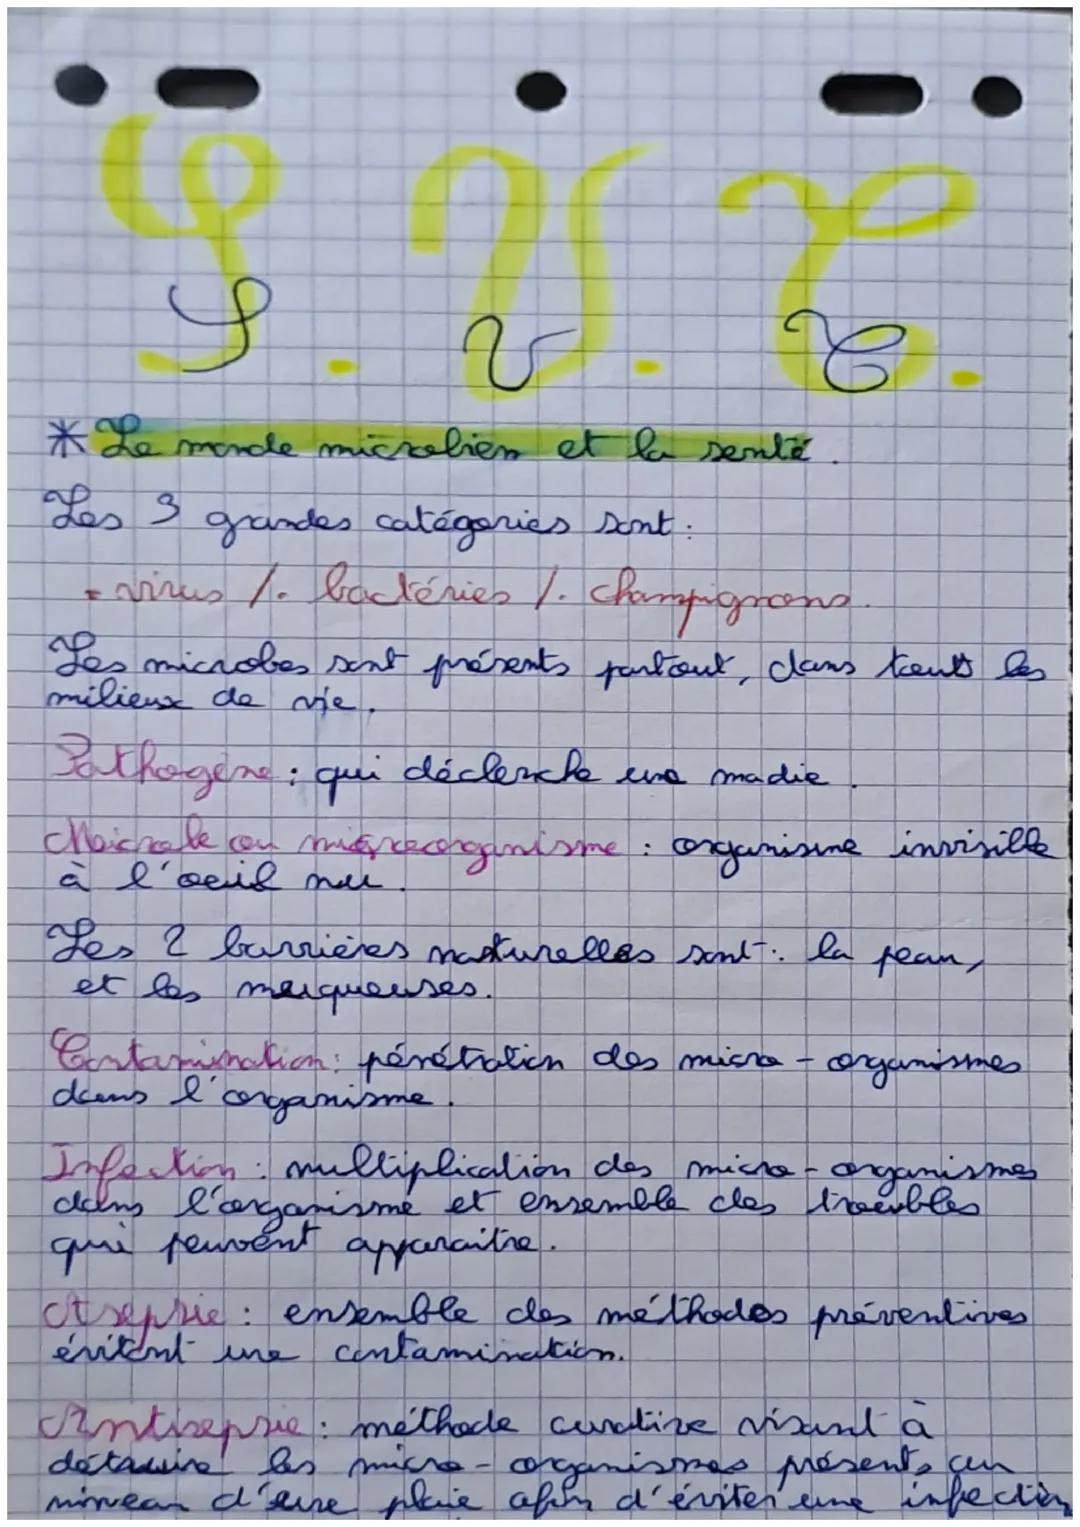 S.V.T.
* Le monde microbien et la santé.
Les 3 grandes catégories sont :
- virus /. bactéries /. champignons.
Les microbes sont présents partout, dans touts les
milieux de vie.
Pathogène : qui déclenche une madie.
Microbe ou microorganisme : organisme invisible
à l'oeil nu.
Les 2 barrières naturelles sont : la peau,
et les muqueuses.
Contamination : pénétration des micro-organismes
dans l'organisme.
Infection : multiplication des micro-organismes
dans l'organisme et ensemble des troubles
qui peuvent apparaitre.
Asepsie : ensemble des méthodes préventives
évitant une contamination.
Antisepsie : méthode curative visant à
détruire les micro-organismes présents au
niveau d'une plaie afin d'éviter une infection